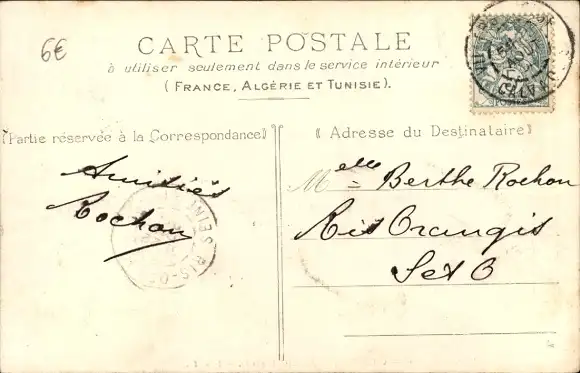 6€
CARTE POSTALE
à utiliser seulement dans le service intérieur
(FRANCE, ALGÉRIE ET TUNISIE).
(Partie réservée à la Correspondance)
Amitiés
Rochon
RIS-O SEINE
CALVADOS
(Adresse du Destinataire)
Melle Berthe Rochon
Ris Orangis
S et O